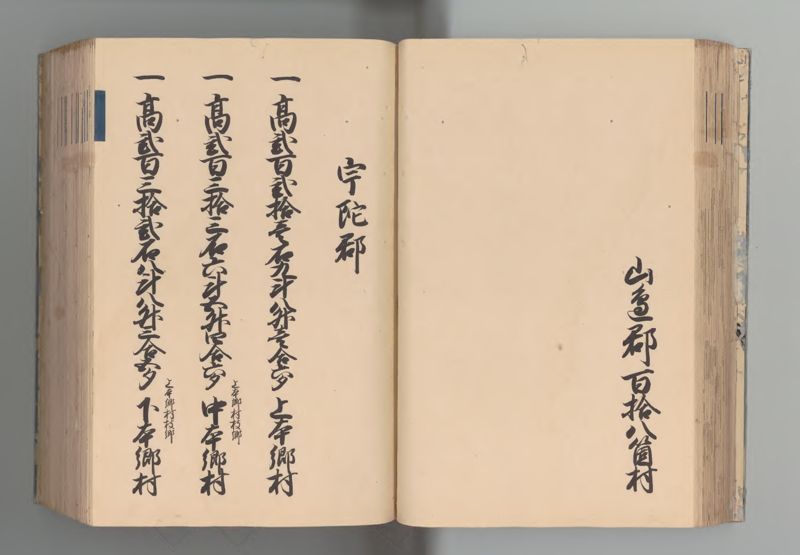 山邊郡百拾八箇村
宇陀郡
一高弐百弐拾壱石九斗八升壱合六夕 上本郷村
一高弐百三拾三石六斗五升四合六夕 上本郷村枝郷 中本郷村
一高弐百三拾弐石八斗八升三合六夕 上本郷村枝郷 下本郷村